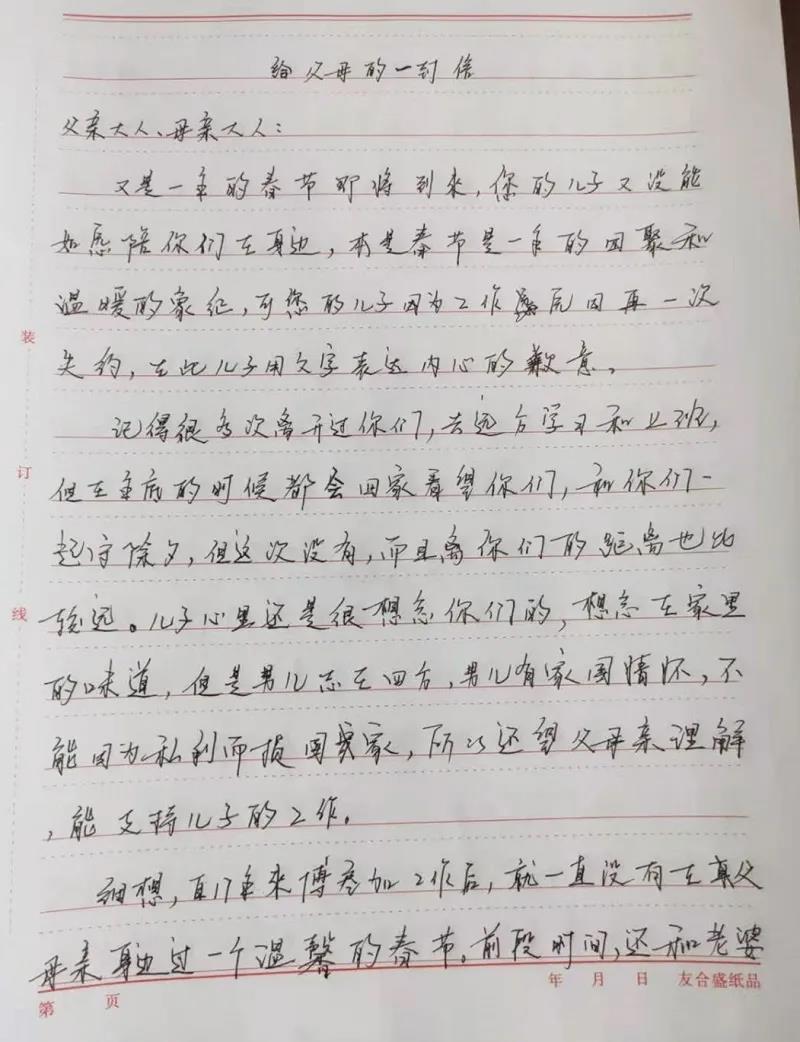 给父母的一封信
父亲大人、母亲大人：
又是一年的春节即将到来，您的儿子又没能
如愿陪你们在身边，本是春节是一年的团聚和
温暖的象征，可您的儿子因为工作原因再一次
失约，在此儿子用文字表达内心的歉意。
记得很多次离开过你们，去远方学习和上班，
但在年底的时候都会回家看望你们，和你们一
起守除夕，但这次没有，而且离你们的距离也比
较远。儿子心里还是很想念你们的，想念在家里
的味道，但是男儿志在四方，男儿有家国情怀，不
能因为私利而损国家，所以还望父母亲理解
，能支持儿子的工作。
细想，自17年来博参加工作后，就一直没有在父
母亲身边过一个温馨的春节。前段时间，还和老婆
装
订
线
第 页
年 月 日 友合盛纸品